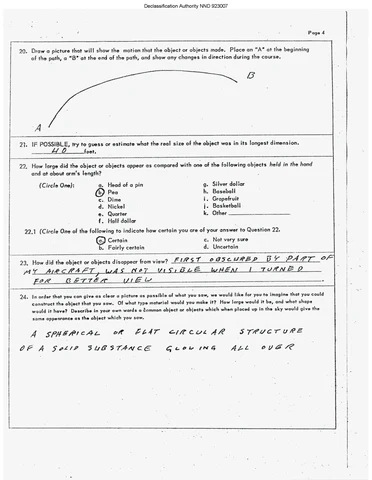 Declassification Authority NND 923007
Page 4
20. Draw a picture that will show the motion that the object or objects made. Place an "A" at the beginning
of the path, a "B" at the end of the path, and show any changes in direction during the course.
B
A
21. IF POSSIBLE, try to guess or estimate what the real size of the object was in its longest dimension.
40 feet.
22. How large did the object or objects appear as compared with one of the following objects held in the hand
and at about arm's length?
(Circle One): a. Head of a pin g. Silver dollar
b. Pea h. Baseball
c. Dime i. Grapefruit
d. Nickel j. Basketball
e. Quarter k. Other
f. Half dollar
22.1 (Circle One of the following to indicate how certain you are of your answer to Question 22.
a. Certain c. Not very sure
b. Fairly certain d. Uncertain
23. How did the object or objects disappear from view? FIRST OBSCURED BY PART OF
MY AIRCRAFT, WAS NOT VISIBLE WHEN I TURNED
FOR BETTER VIEW
24. In order that you can give as clear a picture as possible of what you saw, we would like for you to imagine that you could
construct the object that you saw. Of what type material would you make it? How large would it be, and what shape
would it have? Describe in your own words a common object or objects which when placed up in the sky would give the
same appearance as the object which you saw.
A SPHERICAL OR FLAT CIRCULAR STRUCTURE
OF A SOLID SUBSTANCE GLOWING ALL OVER